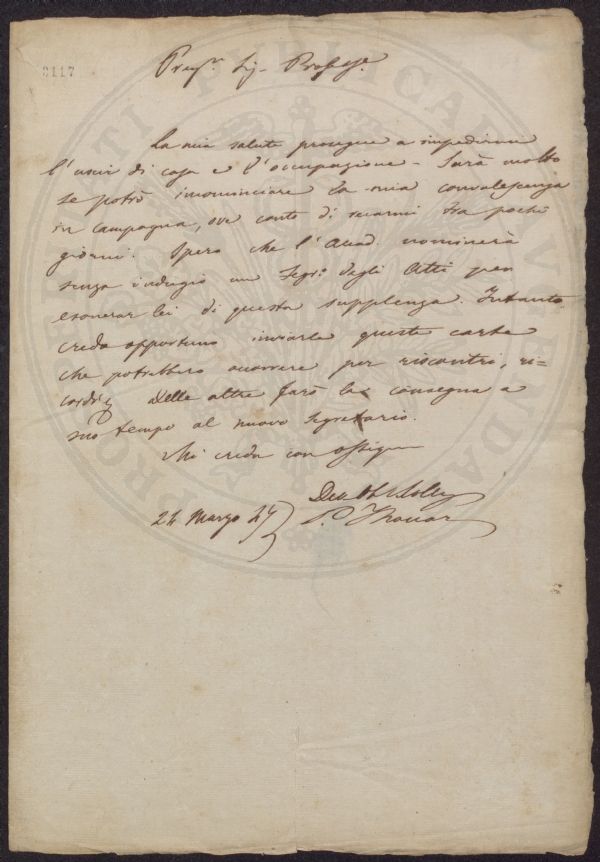 3117
Preg.mo Sig. Profess.e
La mia salute prosegue a impedirmi
l'uscir di casa e l'occupazione. Sarà molto
se potrò incominciare la mia convalescenza
in campagna, ove conto di recarmi tra pochi
giorni. Spero che l'Accad. nominerà
senza indugio un Segr.o degli Atti per
esonerar lei di questa supplenza. Intanto
credo opportuno inviarle queste carte
che potrebbero occorrere per riscontri, ri=
cordi &. Delle altre farò la consegna a
suo tempo al nuovo Segretario.
Mi creda con ossequio
24 Marzo 47
P. Thouar
PROSPERITATI PUBLICAE AUGENDAE